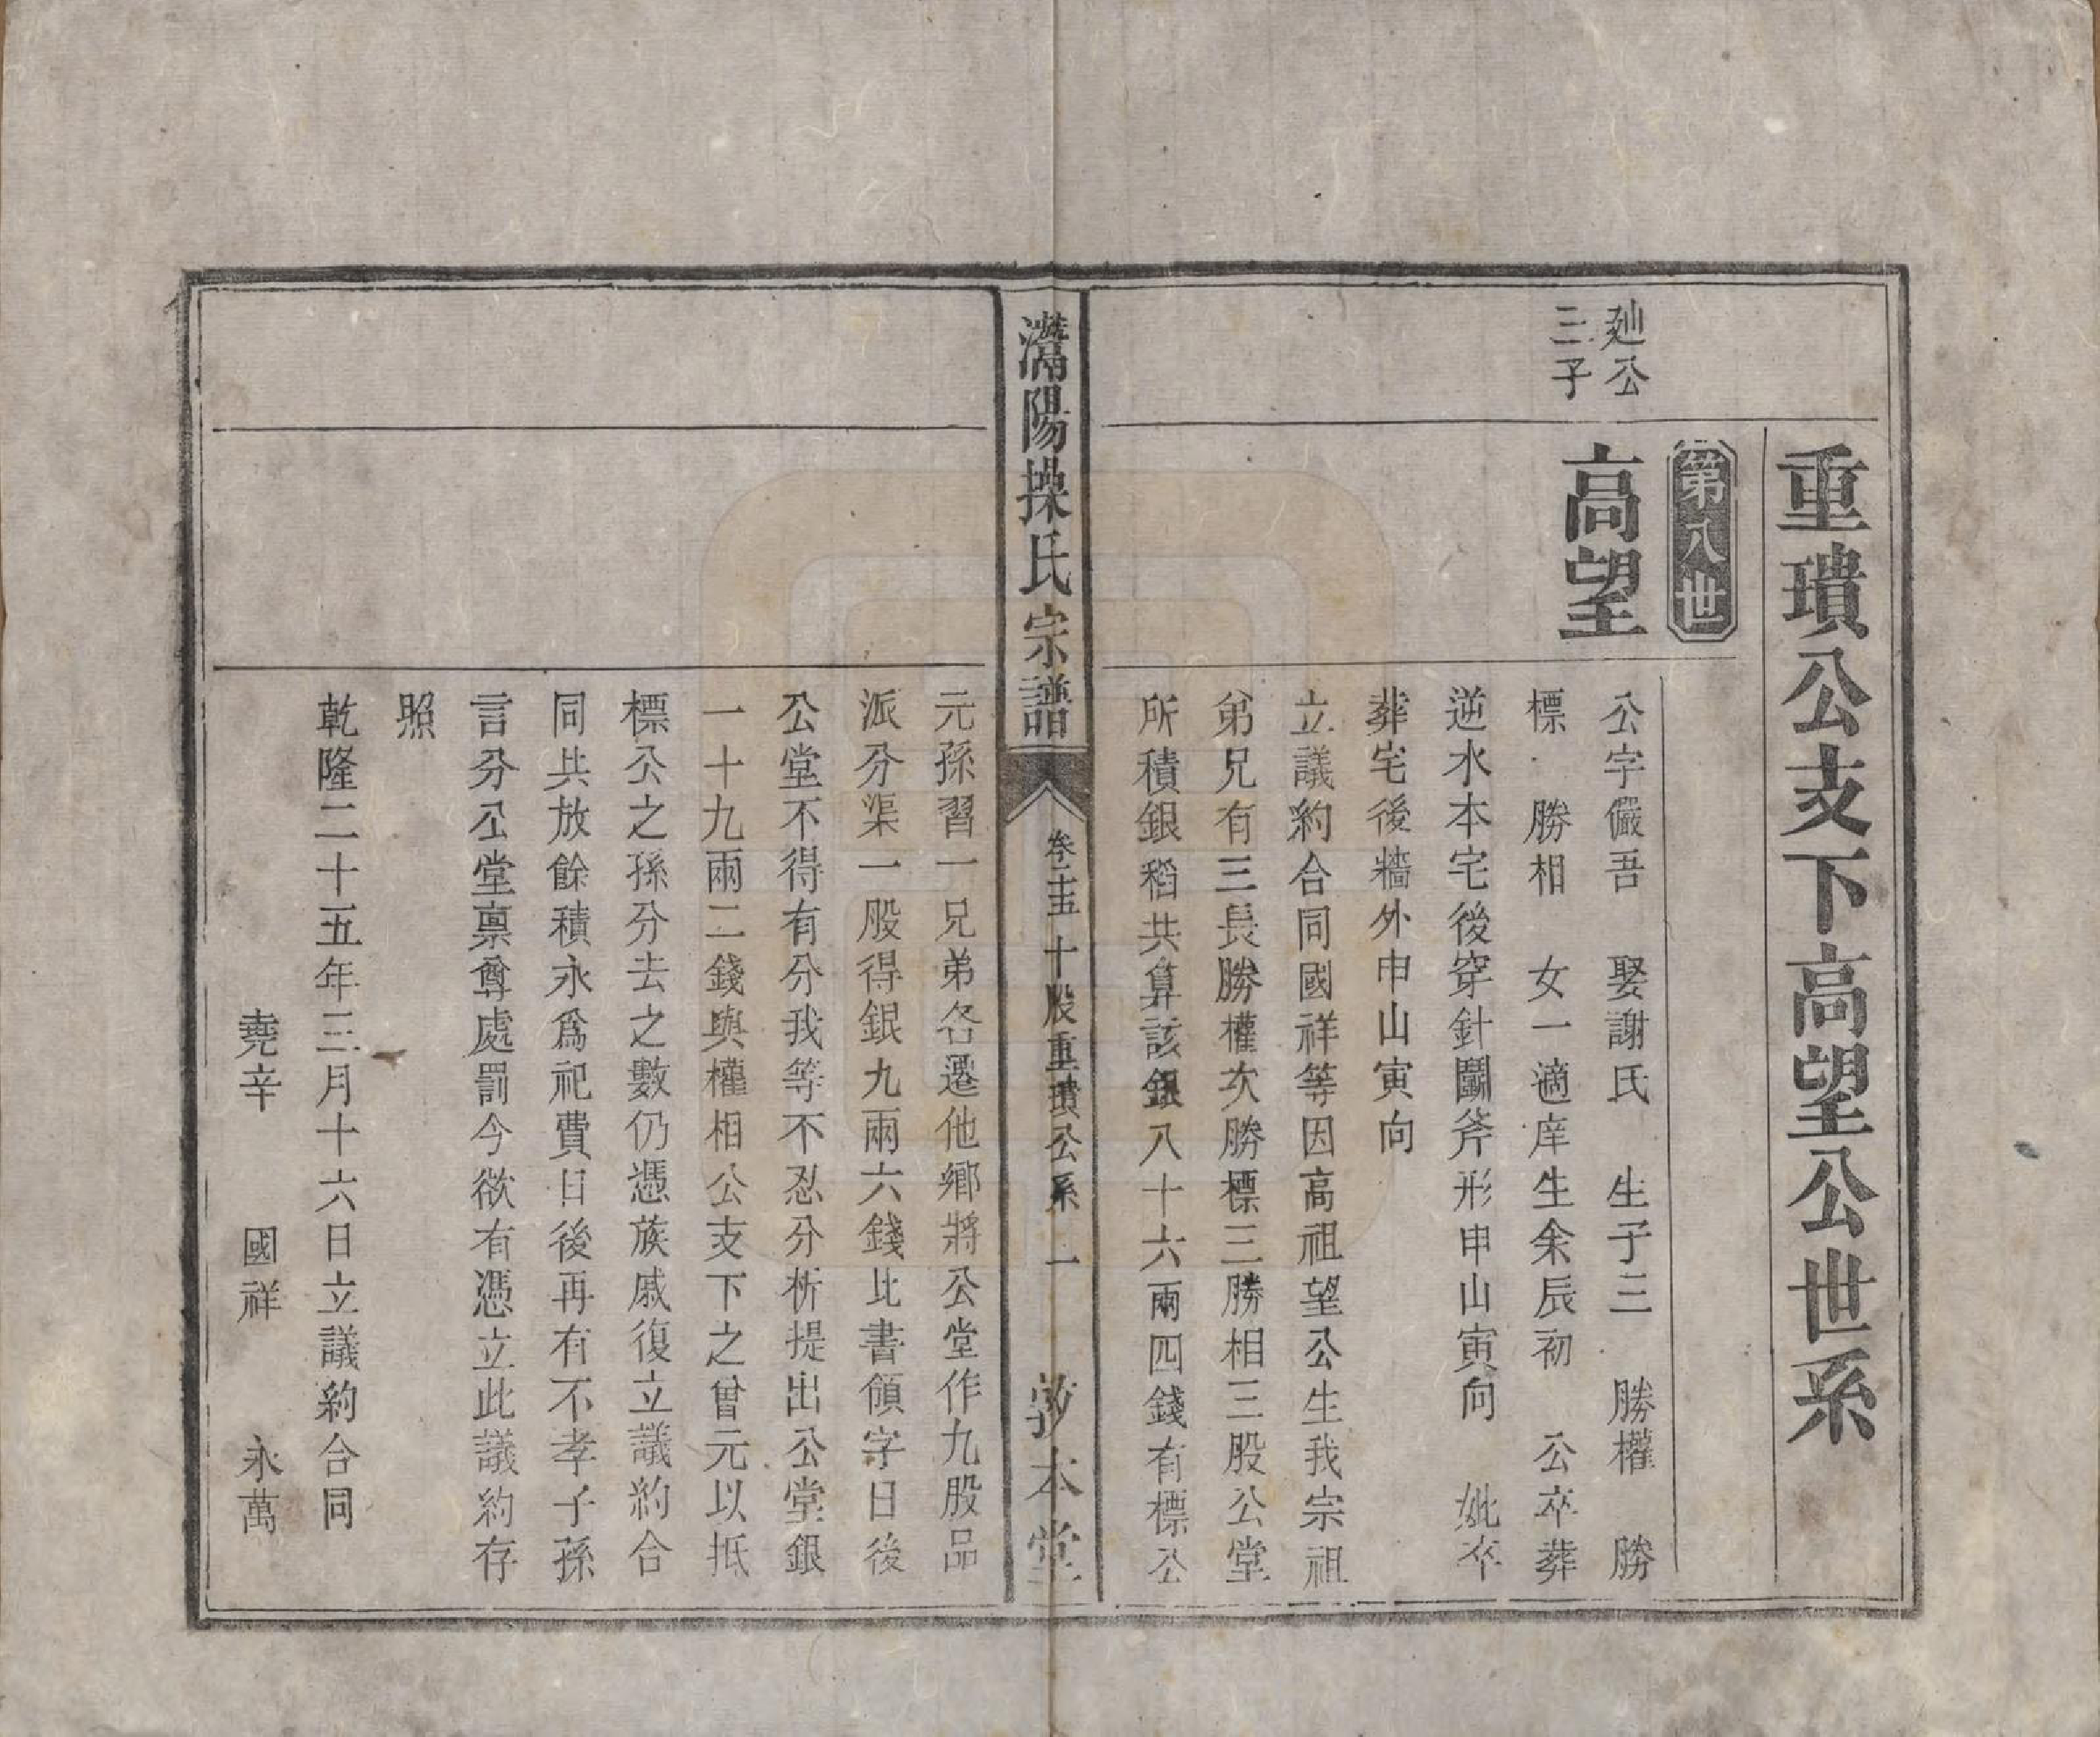 重璝公支下高望公世系
第八世
廵公
三子
高望
公字儼吾　娶謝氏　生子三　勝權　勝
標　勝相　女一適庠生余辰初　公卒葬
逆水本宅後穿針鬭斧形申山寅向　妣卒
葬宅後牆外申山寅向
立議約合同國祥等因高祖望公生我宗祖
弟兄有三長勝權次勝標三勝相三股公堂
所積銀稻共算該銀八十六兩四錢有標公
灊陽操氏宗譜
卷之十五　十股重璝公系　一
敦本堂
元孫習一兄弟各遷他鄉將公堂作九股品
派分渠一股得銀九兩六錢比書領字日後
公堂不得有分我等不忍分析提出公堂銀
一十九兩二錢與權相公支下之曾元以抵
標公之孫分去之數仍憑族戚復立議約合
同共放餘積永爲祀費日後再有不孝子孫
言分公堂禀尊處罰今欲有憑立此議約存
照
乾隆二十五年三月十六日立議約合同
堯辛　國祥　永萬